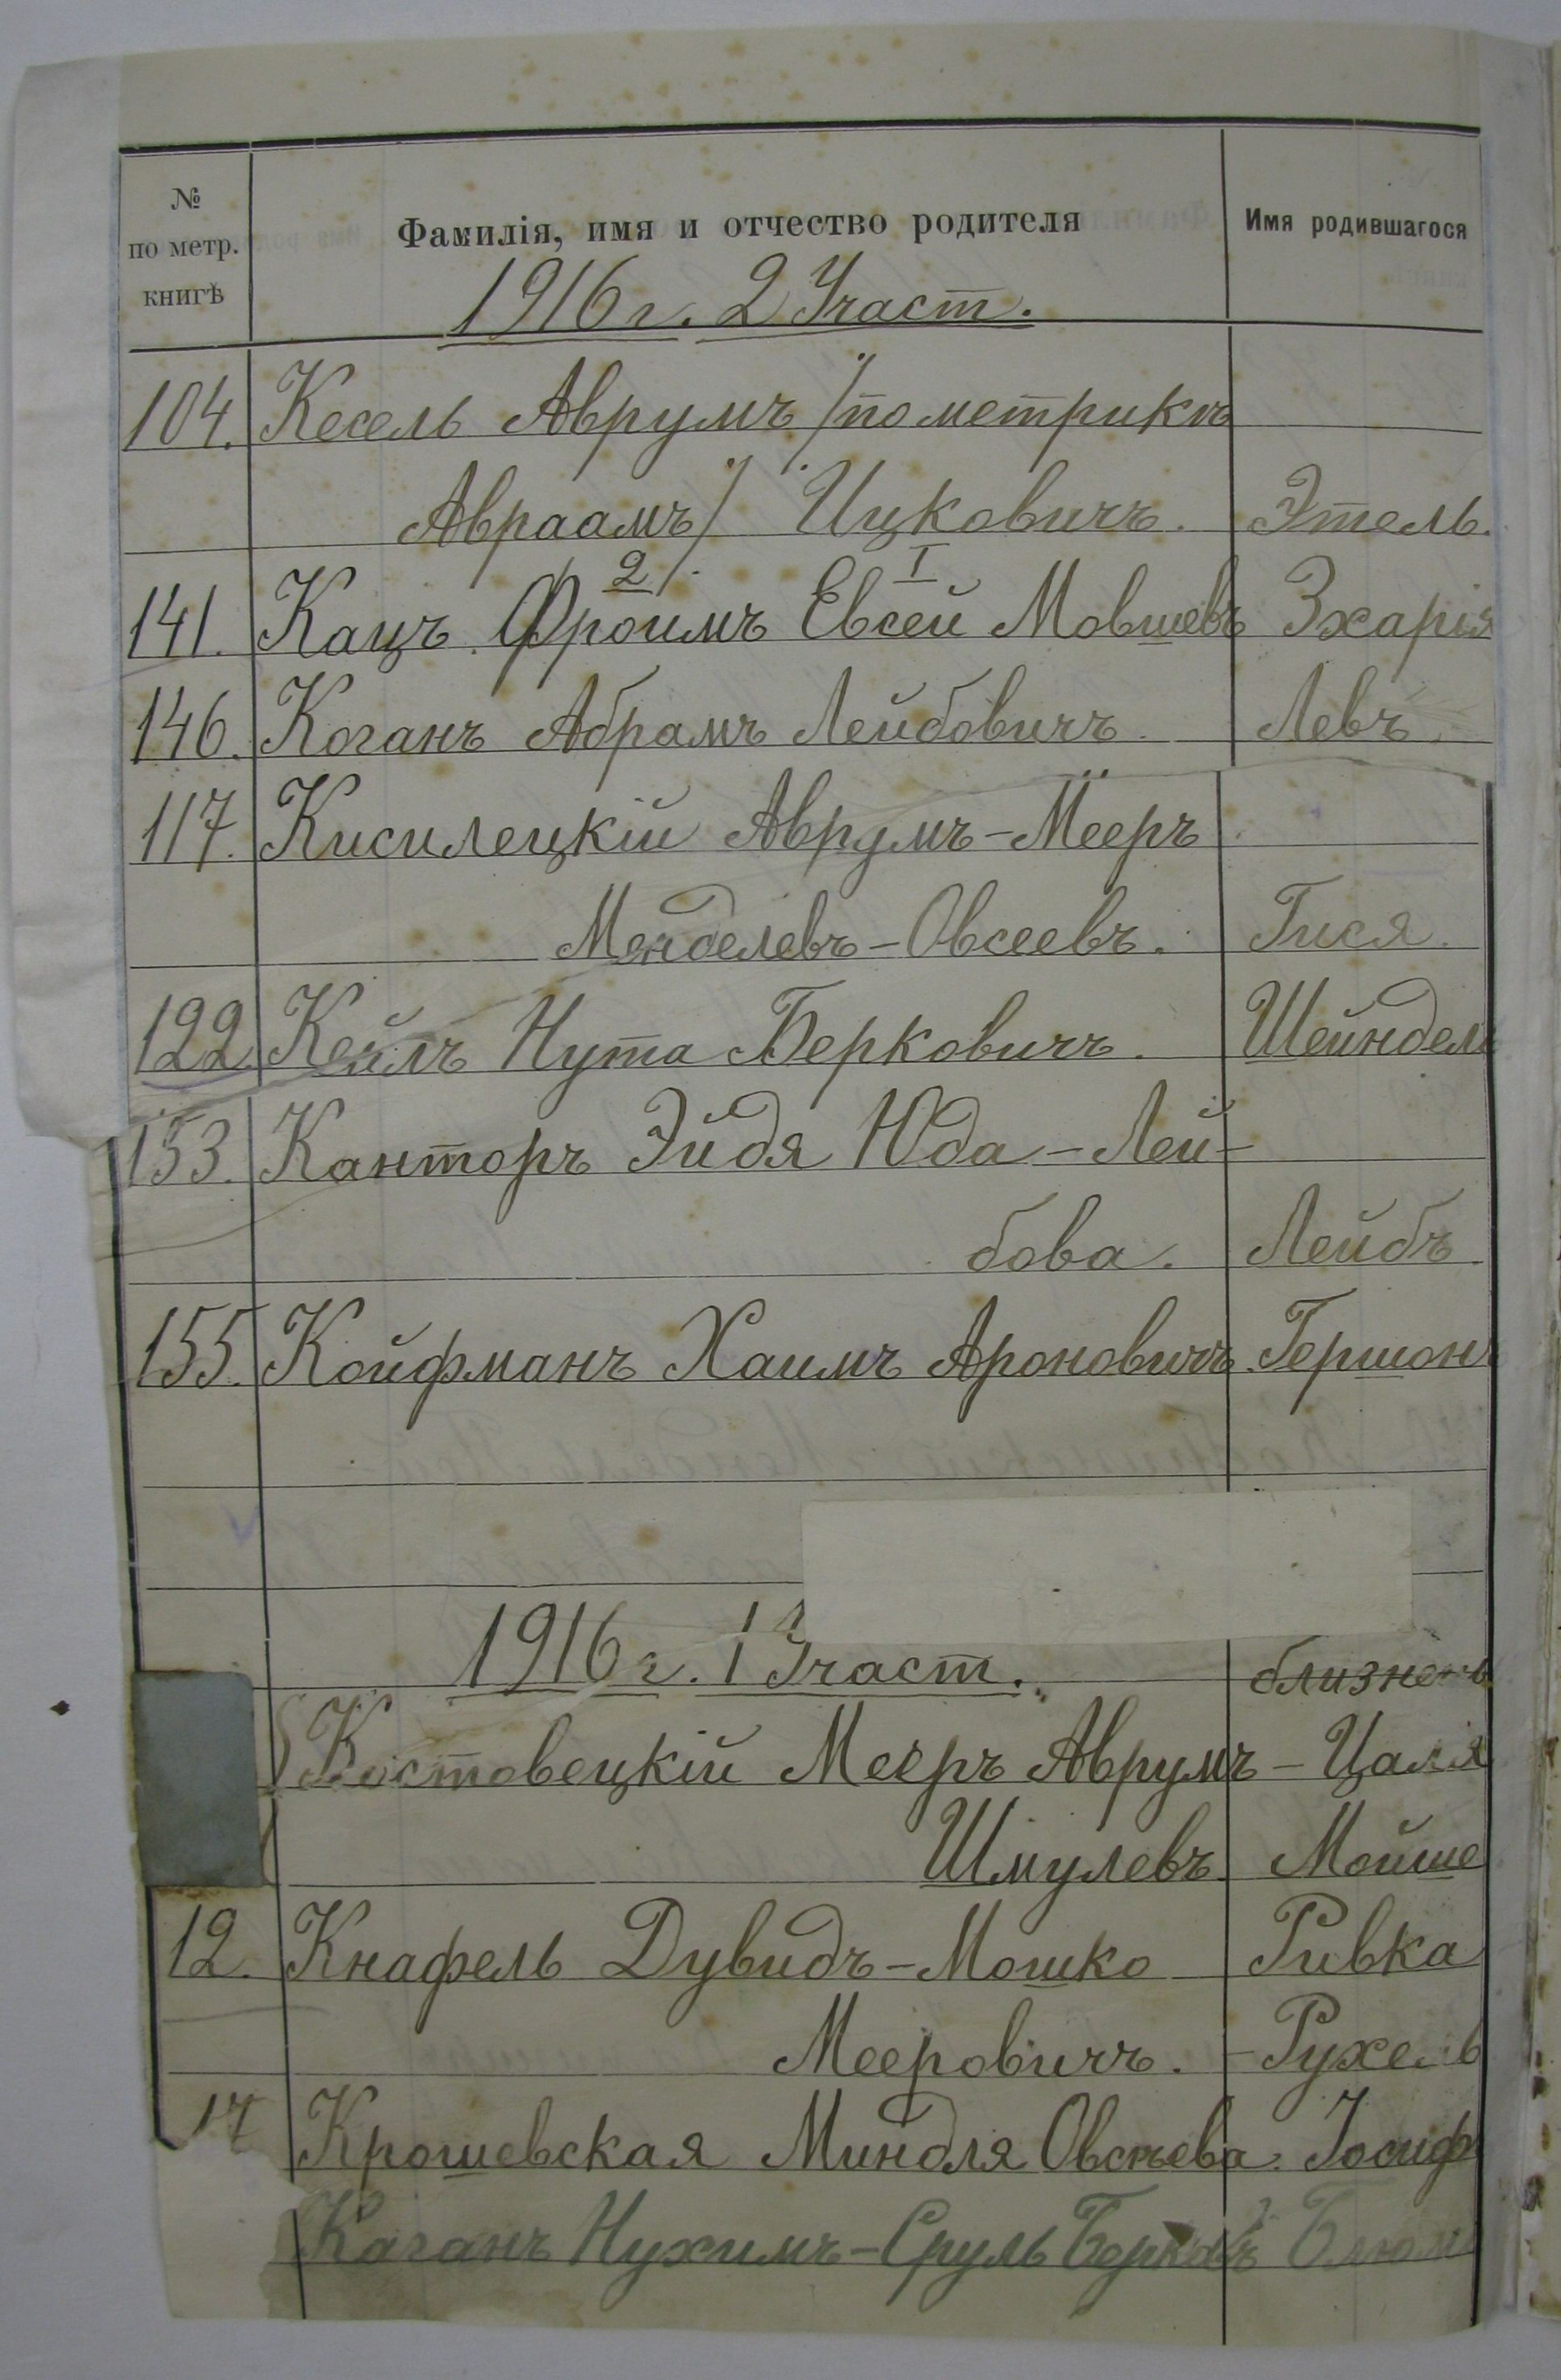 № по метр. книгѣ Фамилія, имя и отчество родителя Имя родившагося
1916 г. 2 Участ.
104. Кесель Аврумъ /по метрикѣ
Авраамъ/ Ицковичъ. Этель.
2 I
141. Кацъ Фроимъ Евсей Мовшевъ Зхарія
146. Коганъ Абрамъ Лейбовичъ. Левъ
117. Кисилецкій Аврумъ-Мееръ
Менделевъ-Овсеевъ. Гися.
122. Кейлъ Нута Берковичъ. Шейндель
153. Канторъ Эйдя Юда-Лей-
бова. Лейбъ.
155. Койфманъ Хаимъ Ароновичъ. Гершонъ
1916 г. 1 Участ.
близнецы
Костовецкій Мееръ Аврумъ - Цаля
Шмулевъ. Мойше
12. Кнафель Дувидъ-Мошко Ривка
Мееровичъ. - Рухель
17 Крошевская Миндля Овсѣева. Іосифъ
Каганъ Нухимъ-Сруль Берковъ